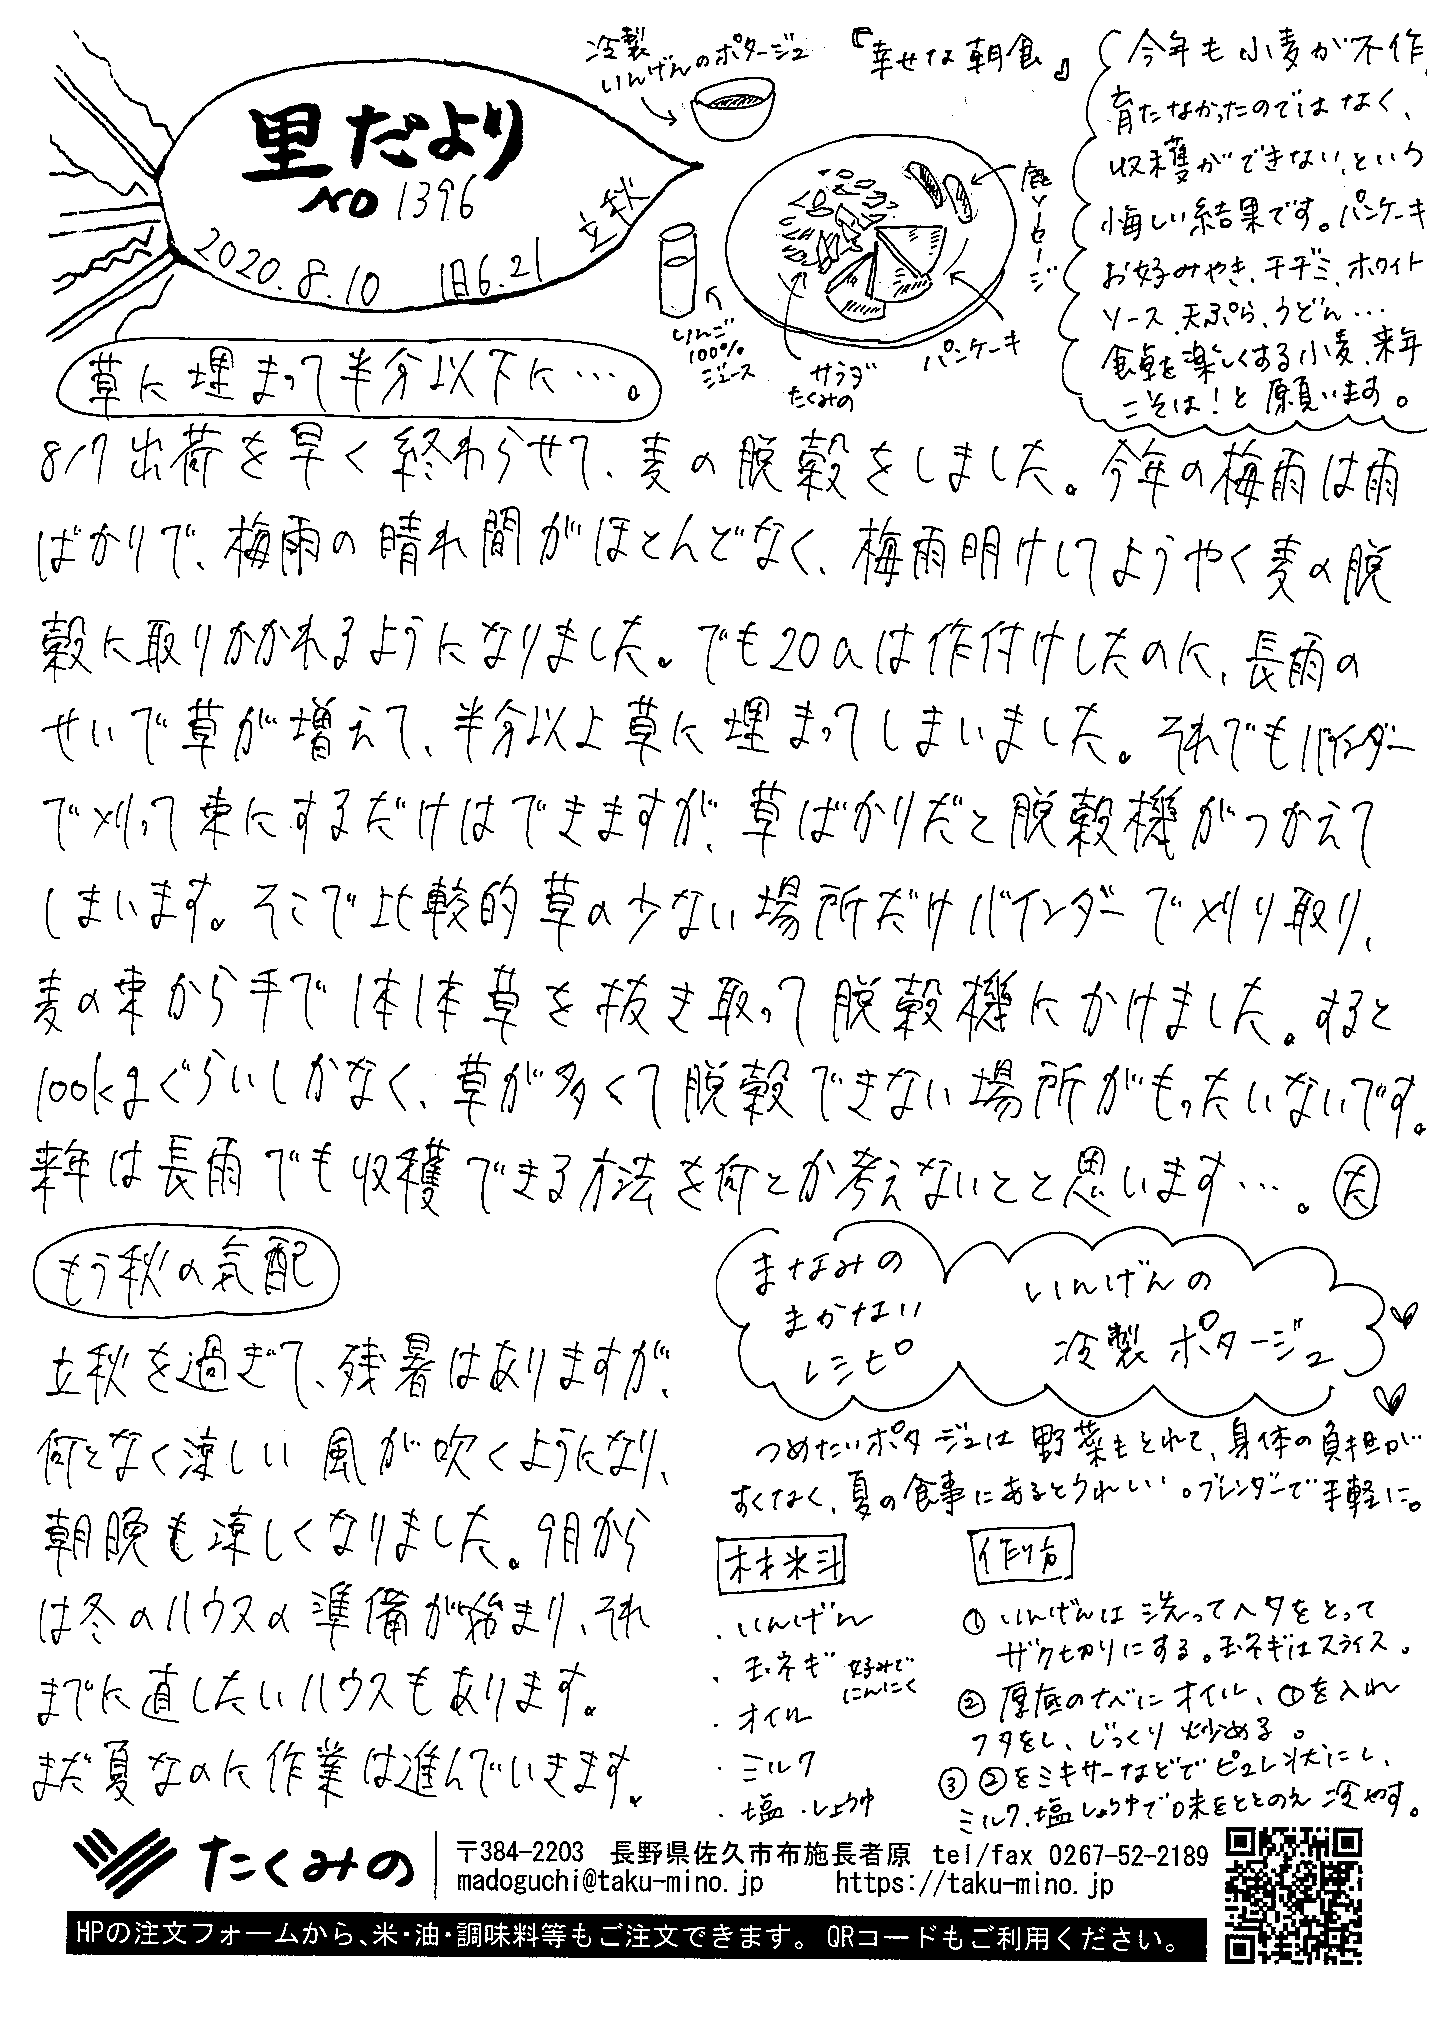 里だより
NO 1396
2020.8.10 旧6.21 立秋
冷製
いんげんのポタージュ
『幸せな朝食』
鹿ソーセージ
りんご
100%
ジュース
サラダ
たくみの
パンケーキ
今年も小麦が不作。
育たなかったのではなく、
収穫ができない、という
悔しい結果です。パンケーキ
お好みやき、チヂミ、ホワイト
ソース、天ぷら、うどん…
食卓を楽しくする小麦、来年
こそは!と願います。
草に埋まって半分以下に…。
8/7出荷を早く終わらせて、麦の脱穀をしました。今年の梅雨は雨
ばかりで、梅雨の晴れ間がほとんどなく、梅雨明けしてようやく麦の脱
穀に取りかかれるようになりました。でも20aは作付けしたのに、長雨の
せいで草が増えて、半分以上草に埋まってしまいました。それでもバインダー
で刈って束にするだけはできますが、草ばかりだと脱穀機がつかえて
しまいます。そこで比較的草の少ない場所だけバインダーで刈り取り、
麦の束から手で1本1本草を抜き取って脱穀機にかけました。すると
100kgぐらいしかなく、草が多くて脱穀できない場所がもったいないです。
来年は長雨でも収穫できる方法を何とか考えないとと思います…。(た)
もう秋の気配
立秋を過ぎて、残暑はありますが、
何となく涼しい風が吹くようになり、
朝晩も涼しくなりました。9月から
は冬のハウスの準備が始まり、それ
までに直したいハウスもあります。
まだ夏なのに作業は進んでいきます。
まなみの
まかない
レシピ
いんげんの
冷製ポタージュ
つめたいポタージュは野菜もとれて、身体の負担が
すくなく、夏の食事にあるとうれしい。ブレンダーで手軽に。
材料
・いんげん
・玉ネギ 好みで
にんにく
・オイル
・ミルク
・塩・しょうゆ
作り方
① いんげんは洗ってヘタをとって
ザク切りにする。玉ネギはスライス。
② 厚底のナベにオイル、①を入れ
フタをし、じっくり炒める。
③ ②をミキサーなどでピュレ状にし、
ミルク、塩しょうゆで味をととのえ冷やす。
たくみの
〒384-2203 長野県佐久市布施長者原 tel/fax 0267-52-2189
madoguchi@taku-mino.jp https://taku-mino.jp
HPの注文フォームから、米・油・調味料等もご注文できます。QRコードもご利用ください。